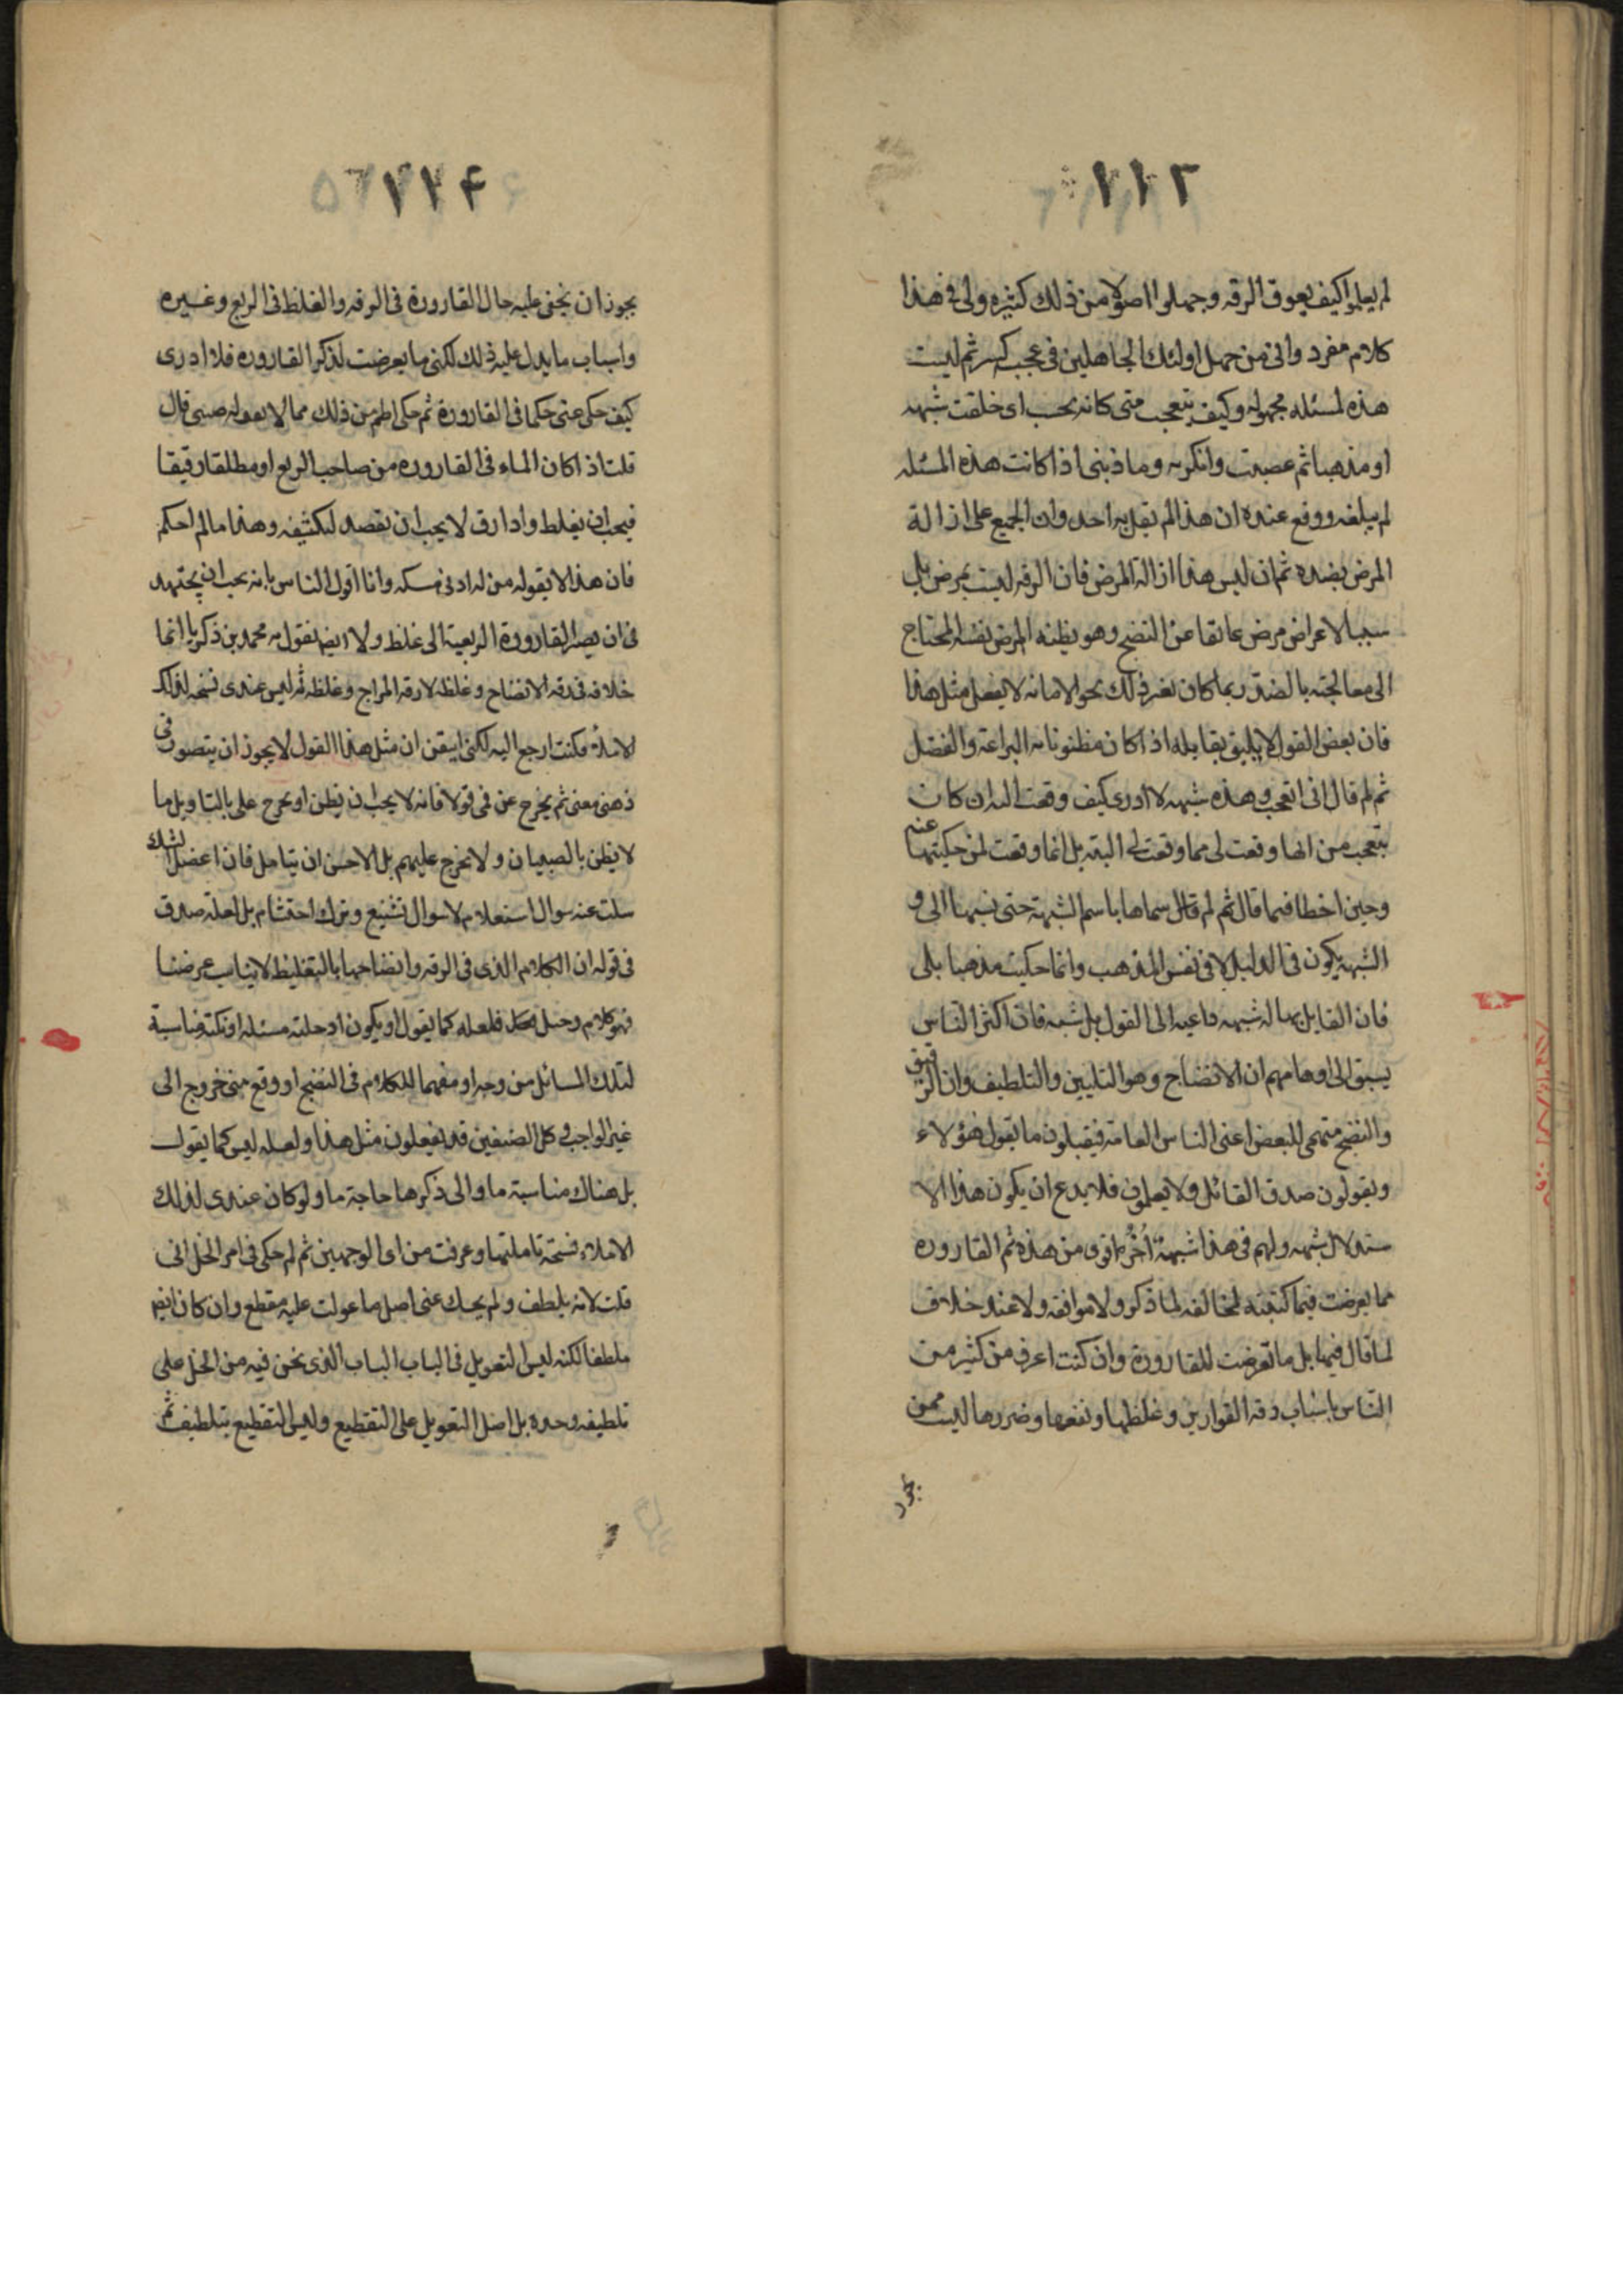 ١١٣
لم يعلموا كيف يعوق الرقه وجهلوا اصولا من ذلك كثيره ولى فى هذا
كلام مفرد وانى من جهل اولئك الجاهلين فى عجب كبير ثم ليست
هذه المسئله مجهوله وكيف يتعجب منى كانه يحسب اى خلقت شبهه
او مذهبا ثم عصبت وانكر به وما ذبنى اذا كانت هذه المسئله
لم يبلغه ووقع عنده ان هذا لم يقل به احد وان الجميع على ازالة
المرض بضده ثم ان ليس هذا ازالة المرض فان الرقه ليست بمرض بل
سببا لاعراض مرض عائقا عن النضج وهو يظنه المرض نفسه المحتاج
الى معالجته بالضد ربما كان بغير ذلك نحو الا ما انه لا يفعل مثل هذا
فان بعض القول لا يليق بقايله اذا كان مظنونا به البراعة والفضل
ثم لم قال انى اتعجب وهذه شبهه لا ادرى كيف وقعت اليه ان كان
يتعجب من انها وقعت لى مما وقعت لى البته بل انما وقعت لمن حكيتها عنه
وحين اخطا فيما قال ثم لم قال سماها باسم الشبهة حتى نسبها الى و
الشبهه يكون فى الدليل لا فى نفس المذهب وانما حكيت مذهبا بلى
فان القايل بها له شبهه داعيه الى القول بل شبه فان اكثر الناس
يسبق الى اوهامهم ان الانضاج وهو التليين والتلطيف وان الرقيق
والنضج متمهى للبعض اعنى الناس العامة فيقبلون ما يقول هؤلاء
ويقولون صدق القائل ولا يعلمون فلا بدع ان يكون هذا الا
ستدلال شبهه ولهم فى هذا شبهة اخرى اقوى من هذه ثم القاروره
مما يعرضت فيما كتبته لمخالفه لما ذكر ولا موافقه ولا عند خلاف
لما قال فيها بل ما تعرضت للقارورة وان كنت اعرف من كثير من
الناس باسباب دقه القوارير وغلظها ونفعها وضررها ليست ممن
يجوز
١١۴
يجوز ان يخفى عليه حال القارورة فى الرقه والغلظ فى الربع وغيره
واسباب ما يدل عليه ذلك لكنى ما يعرضت لذكر القاروره فلا ادرى
كيف حكى عنى حكما فى القارورة ثم حكى اطم من ذلك مما لا يعوله صبى قال
قلت اذا كان الماء فى القاروره من صاحب الربع او مطلقا رقيقا
فيجب ان يغلظ واذا رق لا يجب ان يقصد لتكثيفه وهذا ما لم احكم
فان هذا لا يقوله من له ادنى مسكه وانا اقول الناس بانه يجب ان يجتهد
فى ان يصير القارورة الربعية الى غلظ ولا ايضا يقول به محمد بن زكريا انما
خلافه فى دقه الانضاج وغلظه لا رقة المزاج وغلظه ثم ليس عندى نسخه لذلك
الاملاء فكنت ارجع اليه لكنى ايقن ان مثل هذا القول لا يجوز ان يتصور فى
ذهنى معنى ثم يخرج عن فى قولا فانه لا يجب ان يظن او يخرج على بالتاويل ما
لا يظن بالصبيان ولا يخرج عليهم بل الاحسن ان يتامل فان اعضل الشك
سلت عنه سوال استعلام لا سوال تشنيع وترك احتشام بل لعله صدق
فى قوله ان الكلام الذى فى الرقه وانضاجها بالتغليظ لا يناسب غرضنا
فهو كلام فلعله كما يقول او يكون ادخلته مسئله او نكتة مناسبة
لتلك المسائل من وجه او مفهما للكلام فى النضج او وقع منى خروج الى
غير الواجب وكل المصنفين قد يفعلون مثل هذا ولعله ليس كما يقول
بل هناك مناسبة ما والى ذكرها حاجة ما ولو كان عندى لذلك
الاملاء نسخة تاملتها وعرفت من اى الوجهين ثم لم حكى فى امر الخل انى
قلت لانه يلطف ولم يحك عنى اصل ما عولت عليه مقطع وان كان ايضا
ملطفا لكنه ليس التعويل فى الباب الباب الذى نحن فيه من الخل على
تلطيفه وحده بل اصل التعويل على التقطيع وليس التقطيع بتلطيف ثم